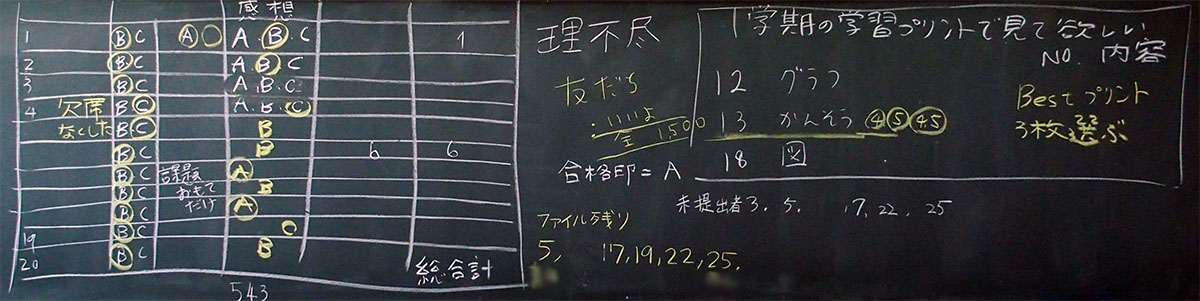 感想
1 B C A A B C 1
2 B C A B C
3 B C A B C
4 欠席 B C A B C
なくした B C B
B C B 6 6
B C 課題 A
B C おもて B
B C だけ A
B C C
19 B C B
20 B C
総合計
543
理不尽
友だち
いいよ
全 1,500
合格印=A
ファイル残り
5, 17,19,22,25.
1学期の学習プリントで見て欲しい
NO. 内容
12 グラフ
13 かんそう ④ ⑤ 4.5
18 図
Bestプリント
3枚選ぶ
未提出者 3. 5. 17, 22, 25